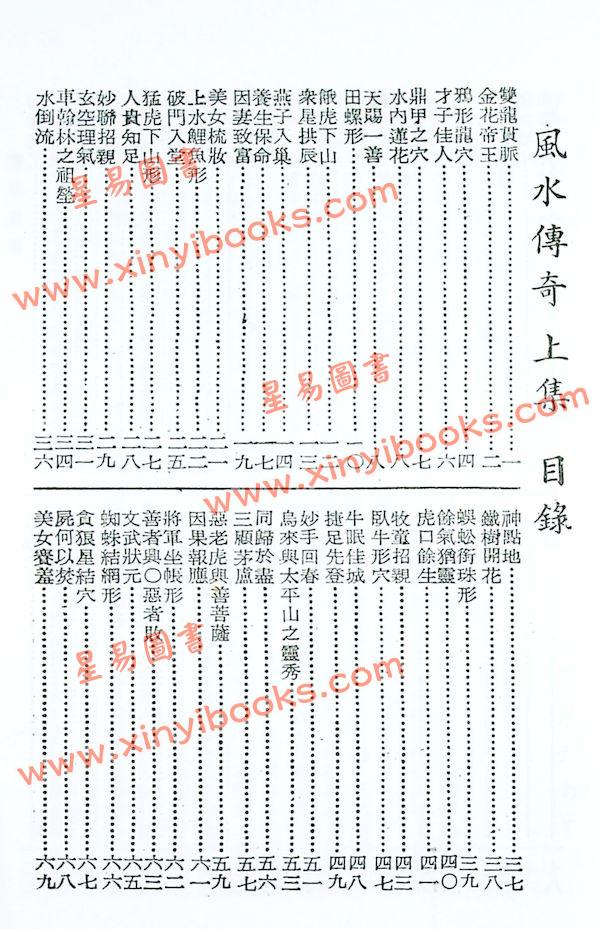 風水傳奇上集 目錄
雙龍貫脈………一
金花帝王………二
鴉形龍穴………四
才子佳人………六
鼎甲之穴………七
水內蓮花………八
天賜一善………八
田螺形………一〇
餓虎下山………一二
衆星拱辰………一三
燕子入巢………一四
養生保命………一七
因妻致富………一九
美女梳妝………二一
上水鯉魚形………二二
破門入堂………二五
猛虎下山形………二七
人貴知足………二八
妙聯招親………二九
玄空理氣………三一
車翰林之祖塋………三四
水倒流………三六
神點地………三七
鐵樹開花………三八
蜈蚣銜珠形………三九
餘氣猶靈………四〇
虎口餘生………四一
牧童招親………四三
臥牛形穴………四七
牛眠佳城………四八
捷足先登………四九
妙手回春………五一
烏來與太平山之靈秀………五三
同歸於盡………五六
三顧茅廬………五九
惡老虎與善菩薩………五九
因果報應………六一
將軍坐帳形………六二
善者興〇惡者敗………六三
文武狀元………六五
蜘蛛結網形………六六
貪狼星結穴………六七
屍何以焚………六八
美女羞………六九
星易圖書
www.xinyibooks.com
星易圖書
www.xinyibooks.com
星易圖書
www.xinyibooks.com